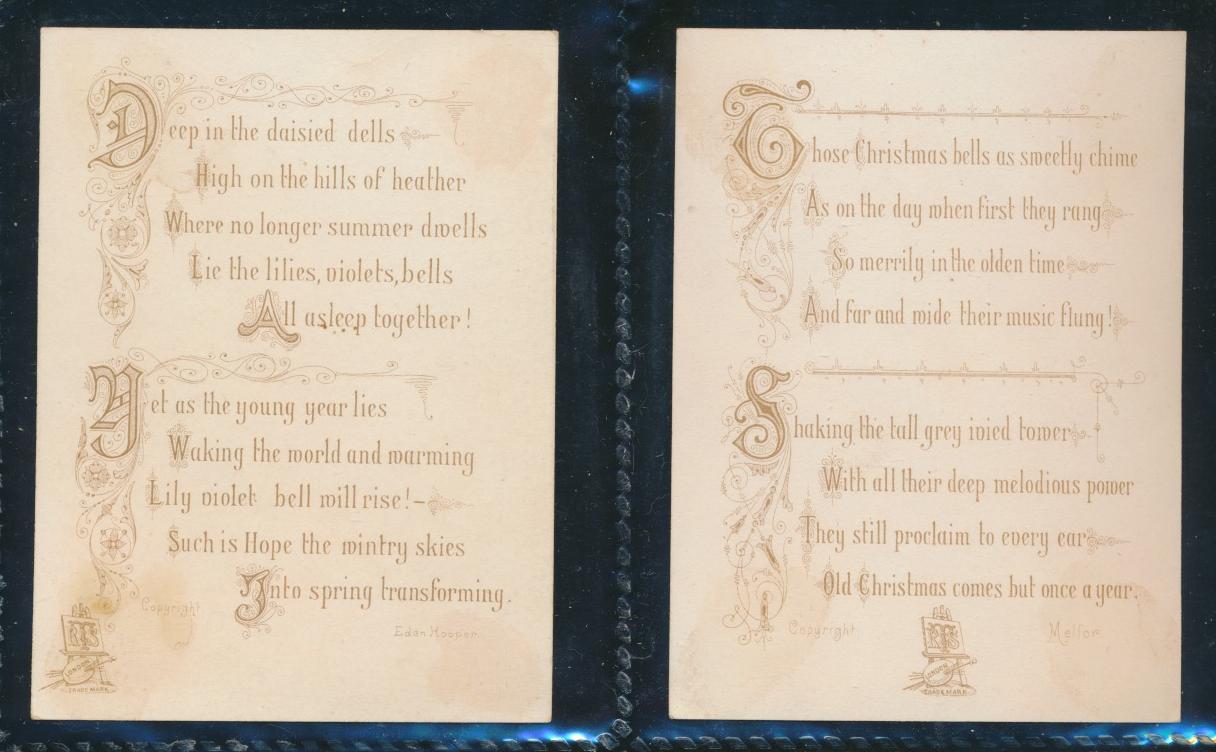 Deep in the daisied dells
High on the hills of heather
Where no longer summer dwells
Lie the lilies, violets, bells
All asleep together!
Yet as the young year lies
Waking the world and warming
Lily violet bell will rise!-
Such is Hope the wintry skies
Into spring transforming.
Copyright
Eden Hooper.
RTS
LONDON
TRADE MARK
Those Christmas bells as sweetly chime
As on the day when first they rang
So merrily in the olden time
And far and wide their music flung!
Shaking the tall grey ivied tower
With all their deep melodious power
They still proclaim to every ear
Old Christmas comes but once a year.
Copyright
Melfor
RTS
LONDON
TRADE MARK